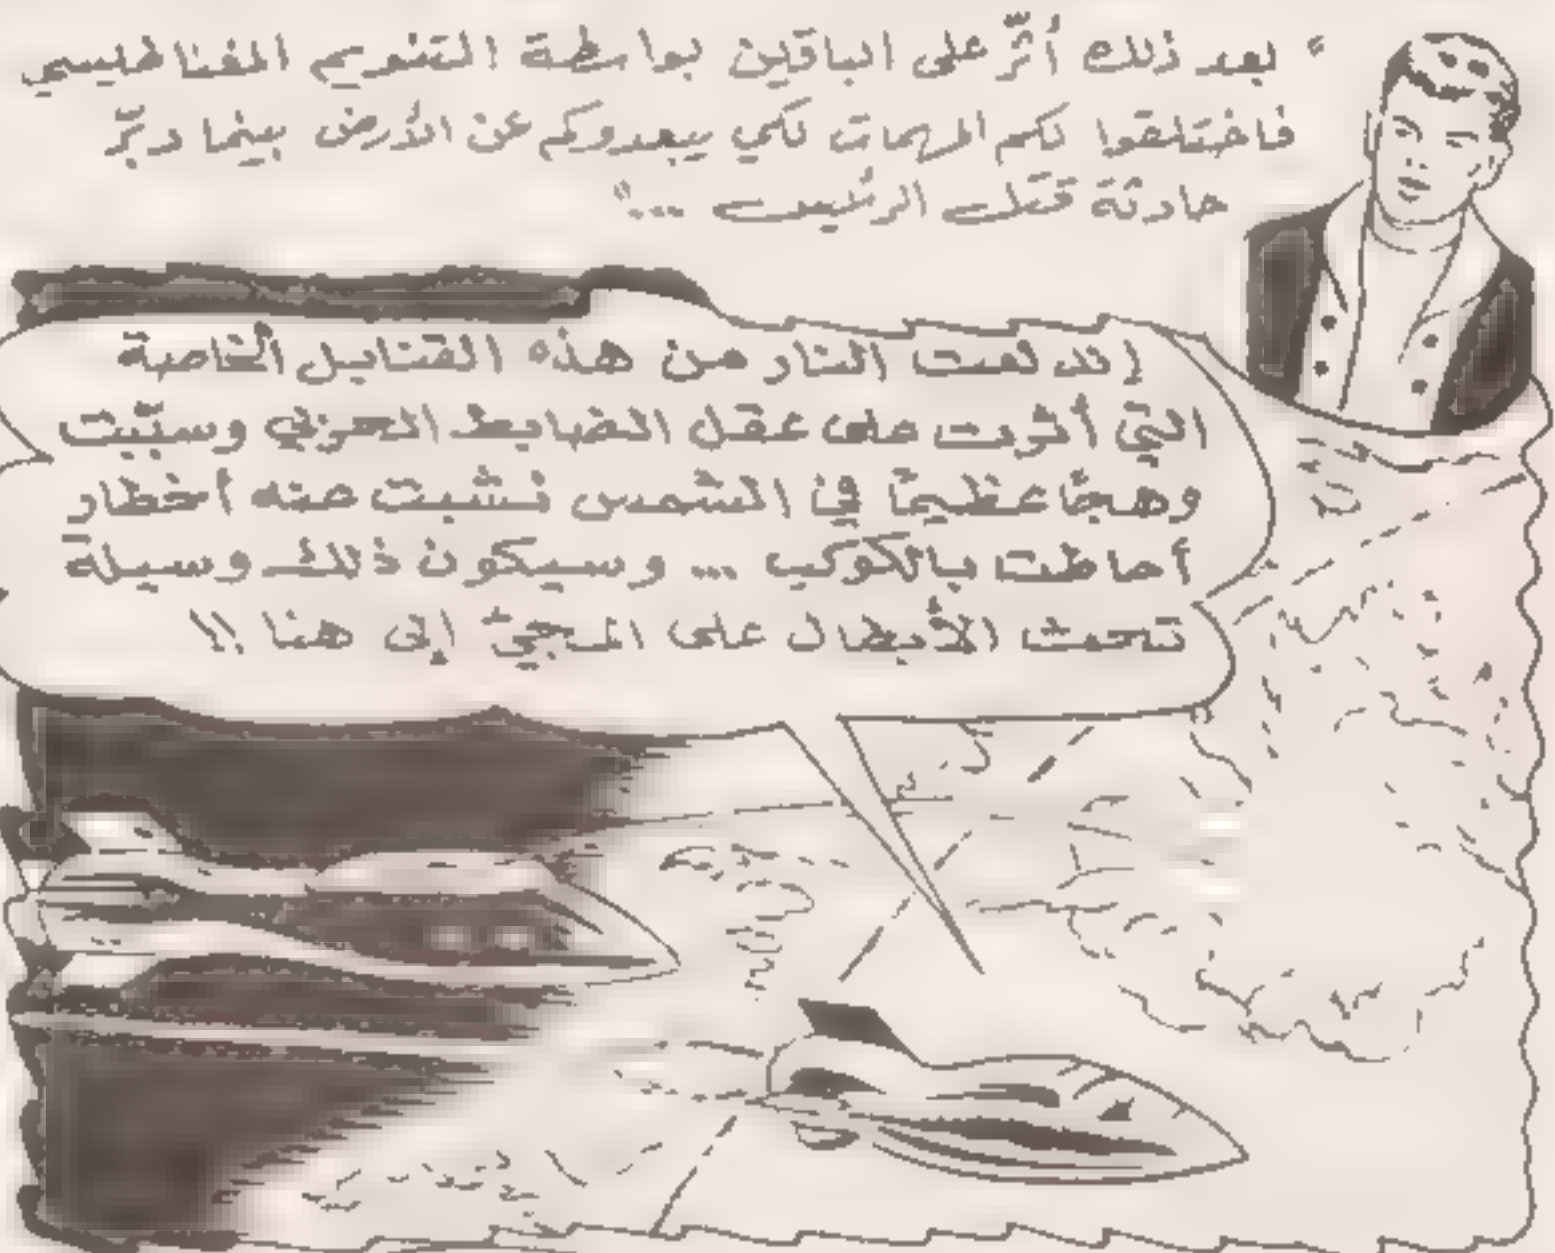 " بعد ذلك أثّر على الباقين بواسطة التنويم المغناطيسي
فاختلقوا لكم المهمات لكي يبعدوكم عن الأرض بينما دبّر
حادثة قتل الرئيس ..."
إندلعت النار من هذه القنابل الخاصة
التي أثرت على عقل الضابط الحزبي وسبّبت
وهجًا عظيمًا في الشمس نشبت منه أخطار
أحاطت بالكوكب ... وسيكون ذلك وسيلة
تحث الأبطال على المجيئ إلى هنا !!